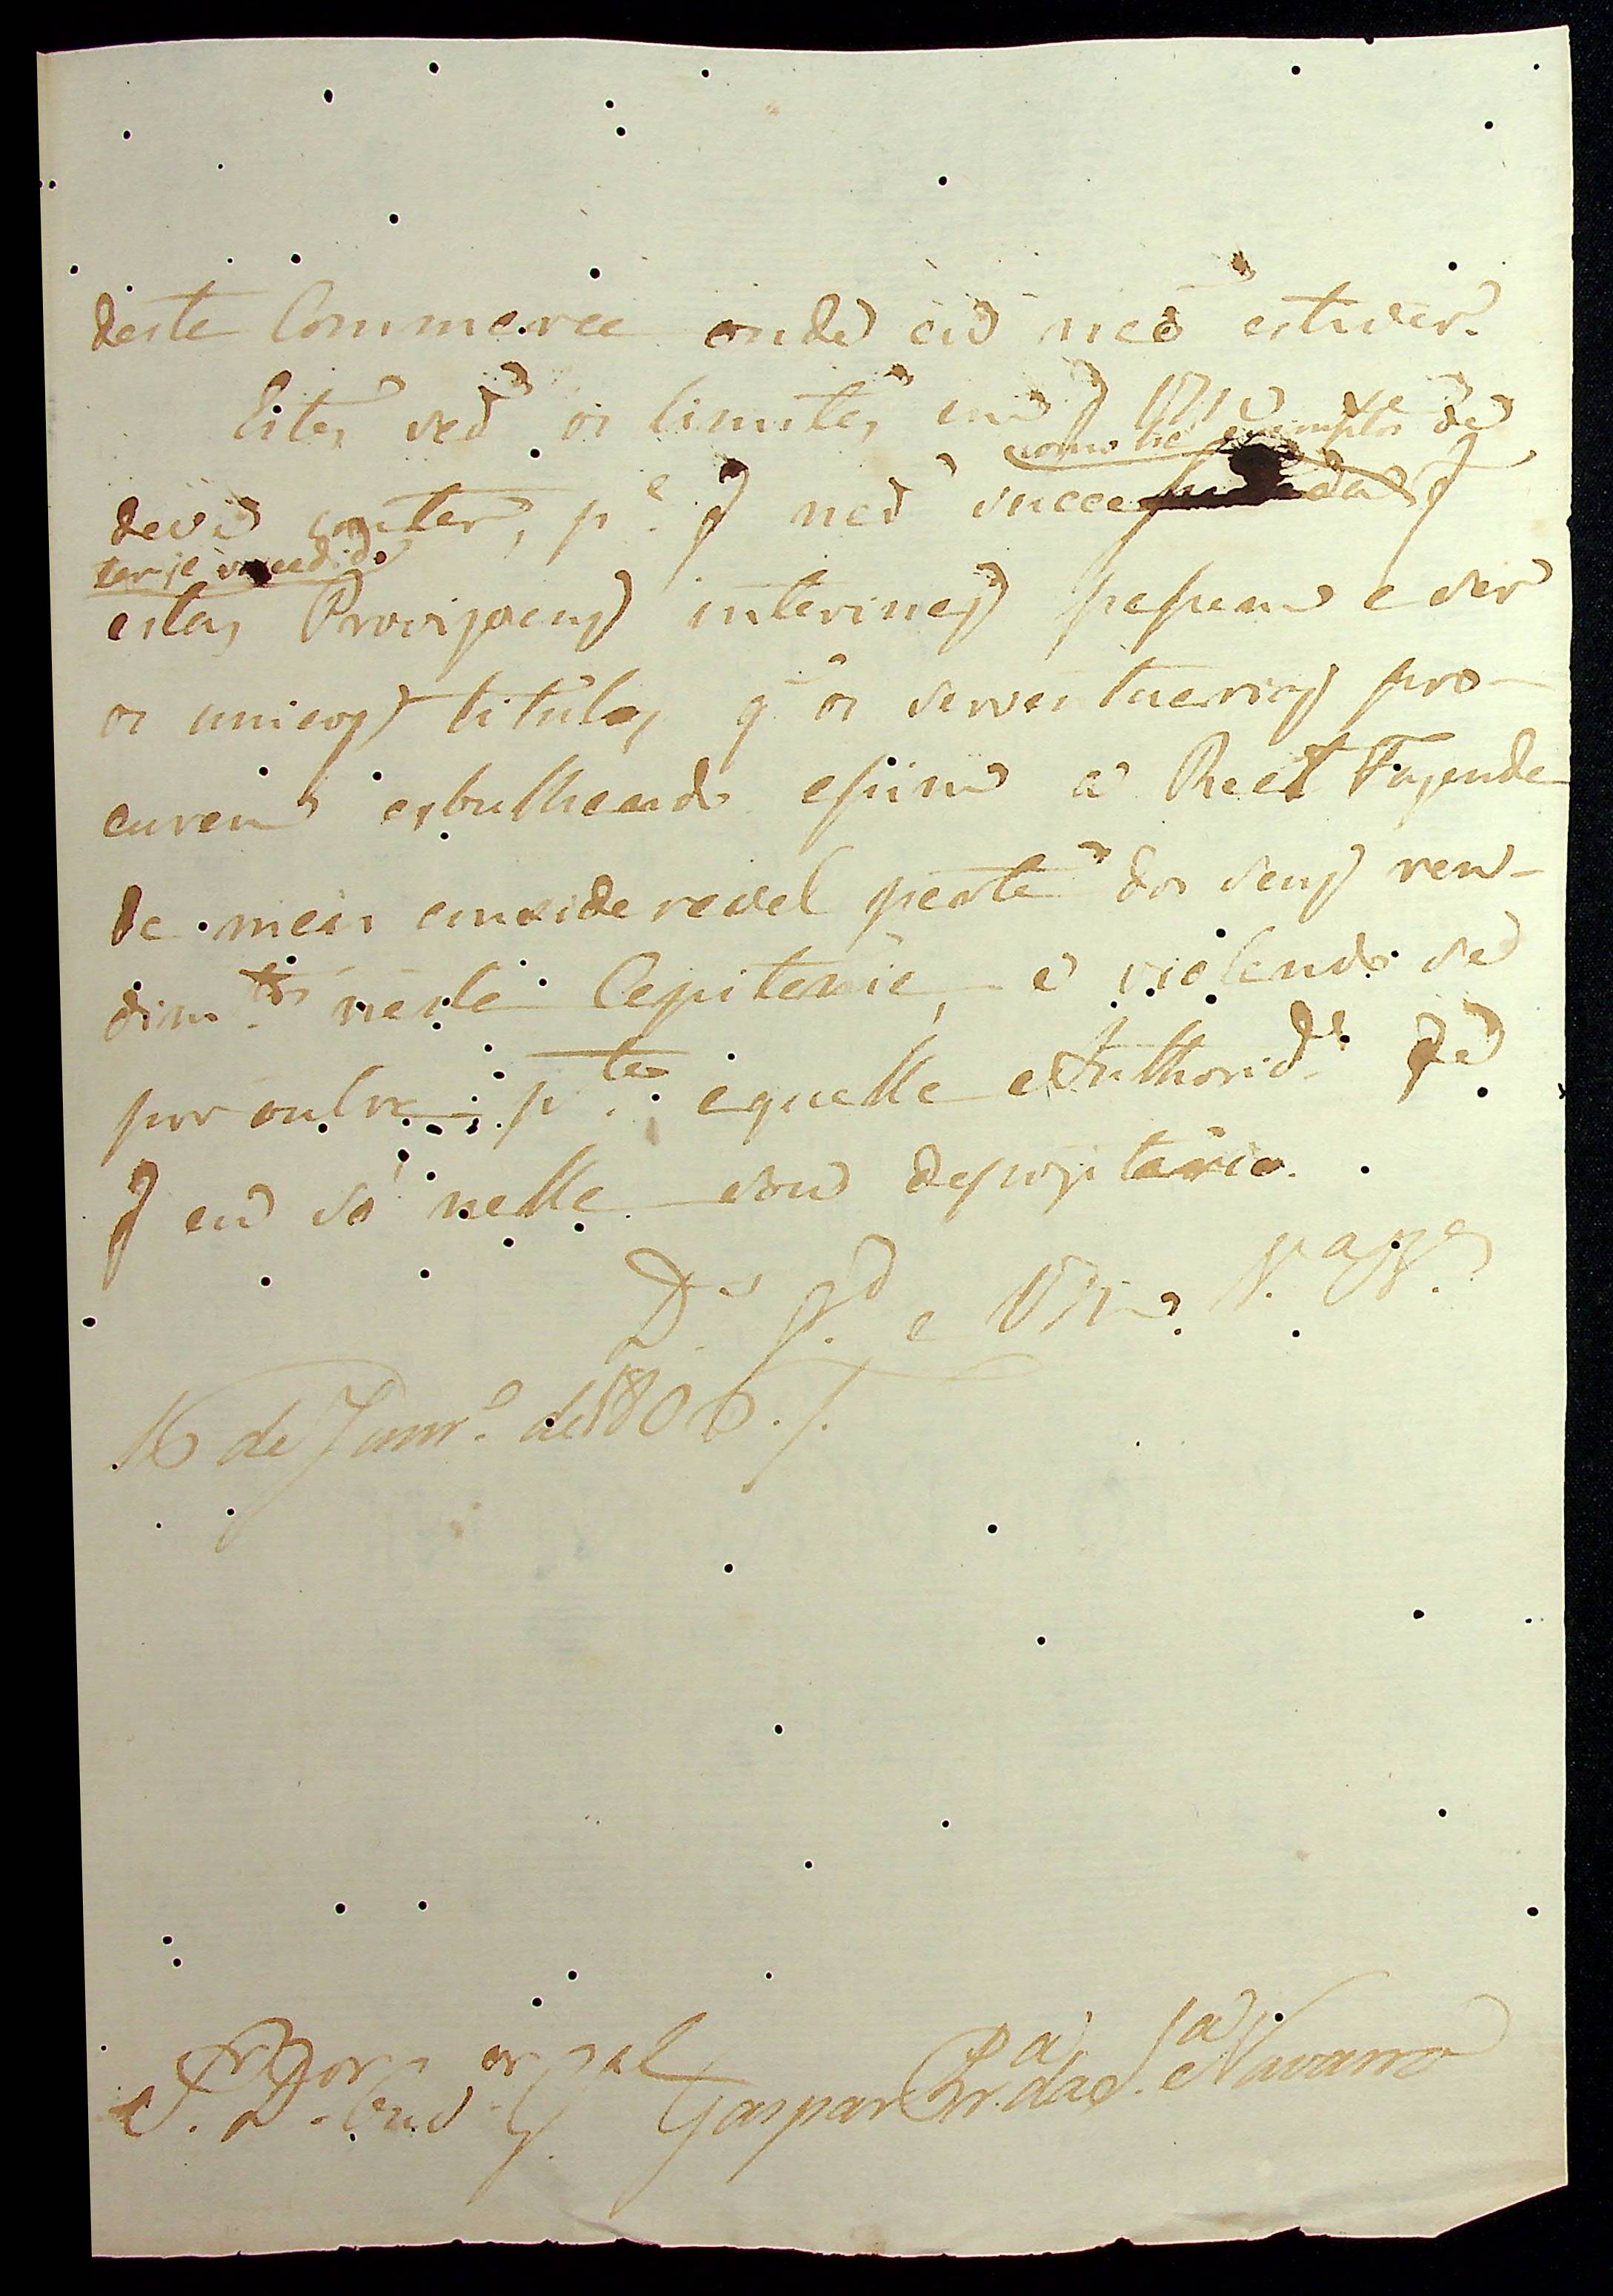 desta Commarca onde eu naõ estiver.
Estes saõ os limites em q̃ Vm.ce se
como ha exemplos de
deve conter, p.a q̃ naõ succe
ter-se vendido
estas Provizoens interinas passem a ser
os unicos titulos q̃ os serventuarios pro-
curem esbulhando assim a Real Fazenda
da mais consideravel parte dos seus ren-
dim.tos nesta Capitania, e violando se
por outra p.te aquella Authorid.e de
q̃ eu só nella sou depozitario.
D.s g.de a Vm.ce
16 de Janr.o de 1806./.
S.r D.or Ouv.or G.al
Gaspar Pr.a da S.a Navarro